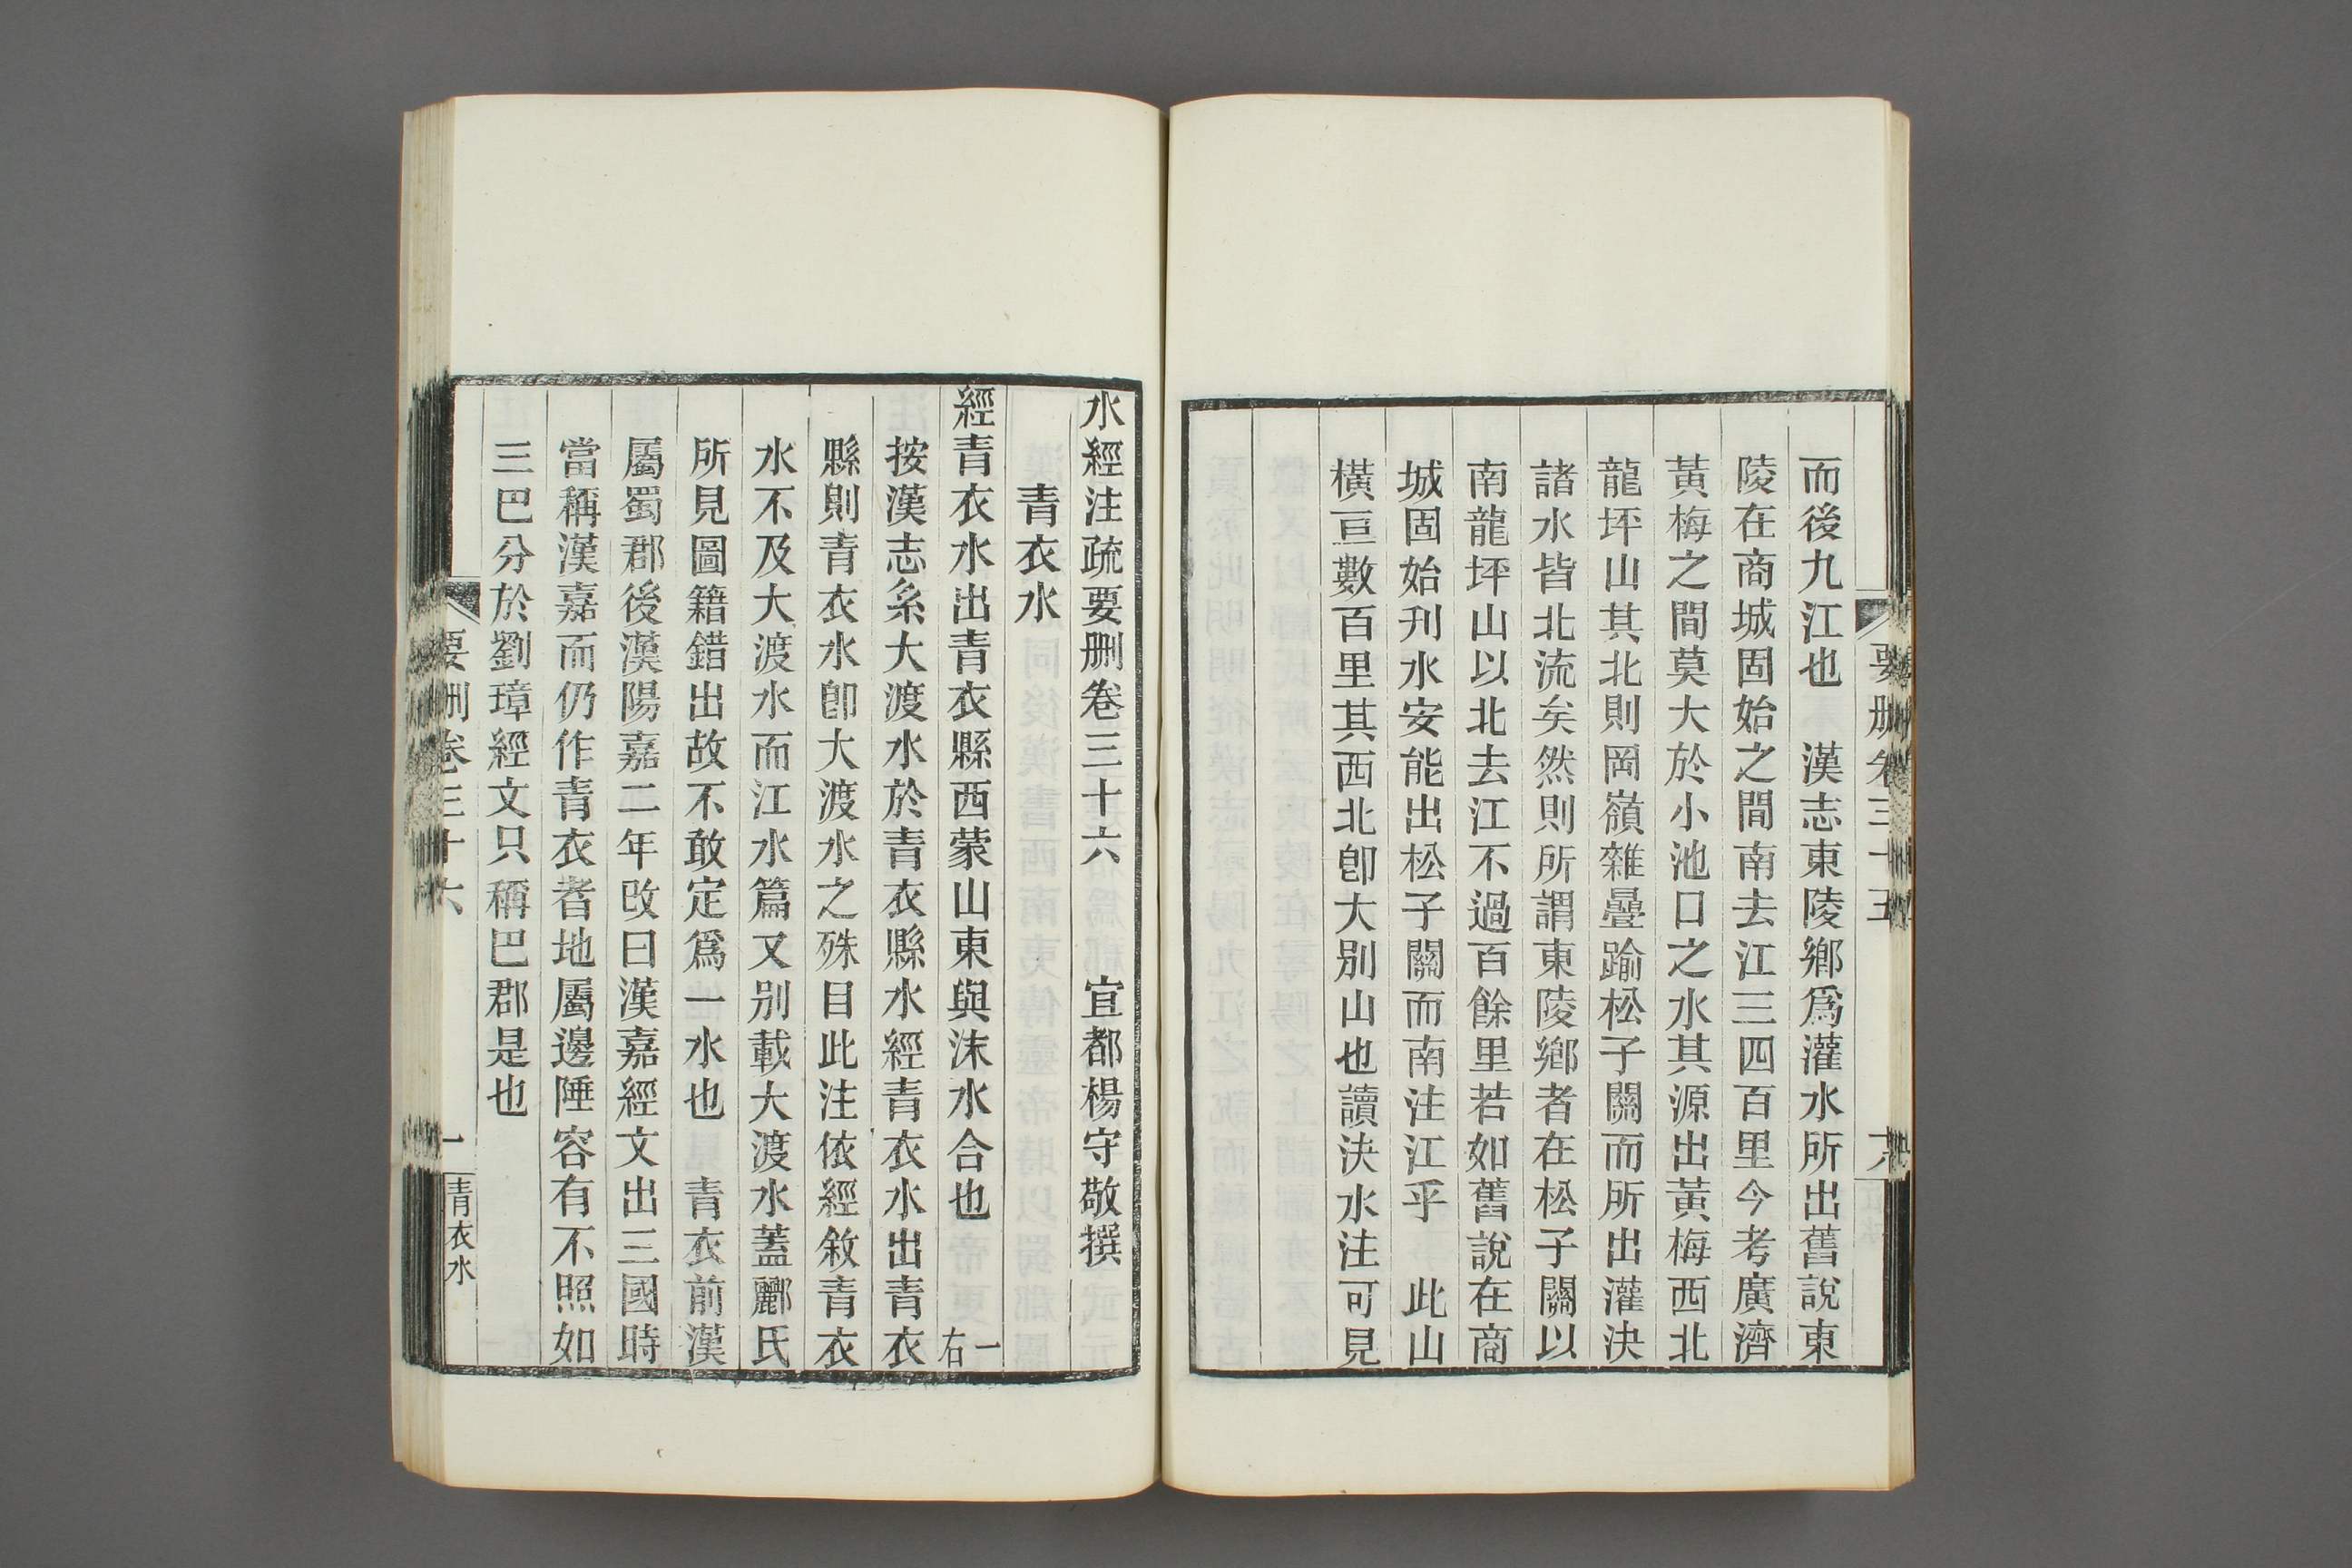 而後九江也　漢志東陵鄉爲灌水所出舊說東
陵在商城固始之間南去江三四百里今考廣濟
黃梅之間莫大於小池口之水其源出黃梅西北
龍坪山其北則岡嶺雜疊踰松子關而所出灌決
諸水皆北流矣然則所謂東陵鄉者在松子關以
南龍坪山以北去江不過百餘里若如舊說在商
城固始刋水安能出松子關而南注江乎　此山
橫亘數百里其西北卽大別山也讀決水注可見
要刪卷三十五
水經注疏要刪卷三十六　宜都楊守敬撰
青衣水
經青衣水出青衣縣西蒙山東與沫水合也　一右
按漢志系大渡水於青衣縣水經青衣水出青衣
縣則青衣水卽大渡水之殊目此注依經敘青衣
水不及大渡水而江水篇又別載大渡水蓋酈氏
所見圖籍錯出故不敢定爲一水也　青衣前漢
屬蜀郡後漢陽嘉二年改曰漢嘉經文出三國時
當稱漢嘉而仍作青衣者地屬邊陲容有不照如
三巴分於劉璋經文只稱巴郡是也
要刪卷三十六　一　青衣水